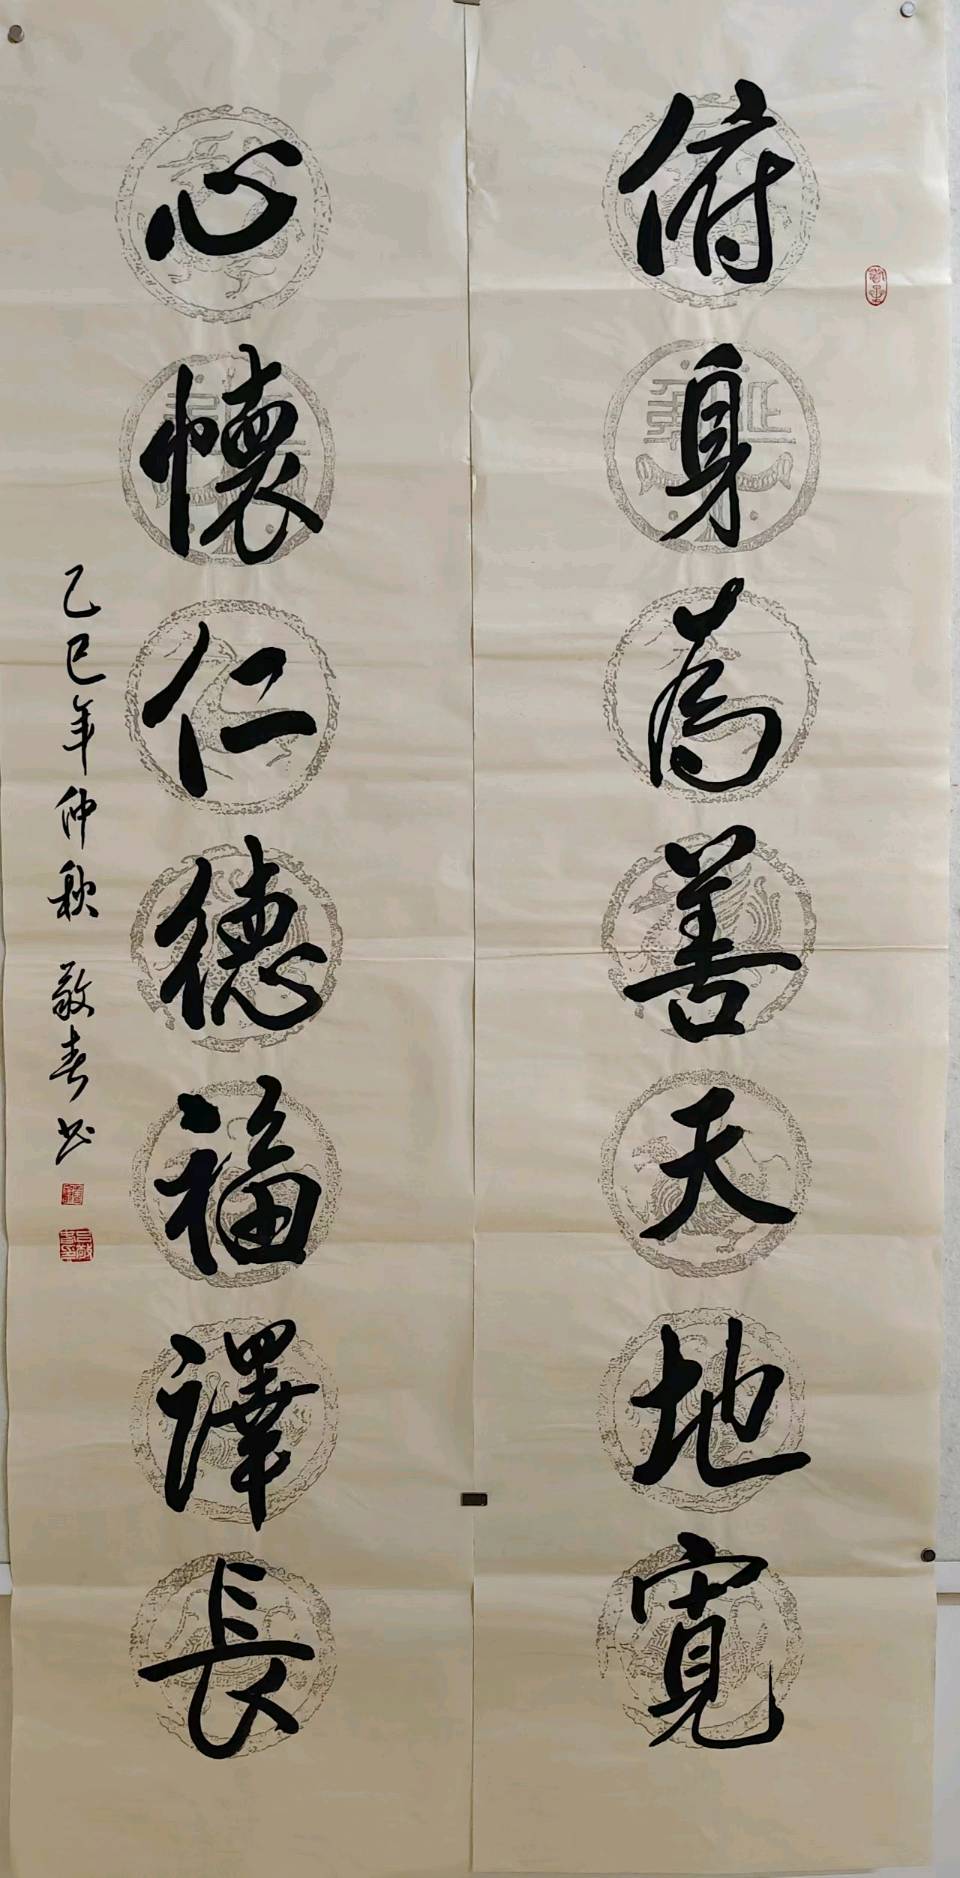 俯身為善天地寬
心懷仁德福澤長
乙巳年仲秋 敬春书